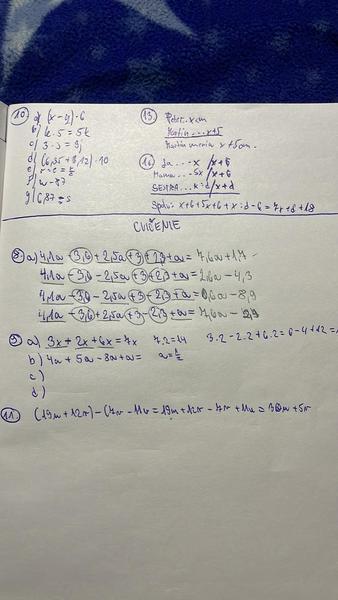 10 a) (x - y) · 6
b) k · 5 = 5k
c) 3 · 3 = 9j
d) (6,35 + 8,12) · 10
f) w - 87
g) 6,87 - s
13 Peter.. x cm
Martin ... x+5
Martin meria x + 5cm.
14 Ja ... - x / x+6
Mama... - 5x / x+6
SESTRA... x:d / x+d
Spolu: x+6 + 5x+6 + x:d - 6 = 7x+6+18
CVIČENIE
8. a) 4,1a - 3,6 + 2,5a + 3 + 2,3 + a = 7,6a + 1,7
4,1a - 3,6 - 2,5a + 3 - 2,3 + a = 2,6a - 4,3
4,1a - 3,6 - 2,5a + 3 - 2,3 + a = 0,6a - 8,9
4,1a - 3,6 + 2,5a + 3 - 2,3 + a = 7,6a -
9. a) 3x + 2x + 6x = 7x 7.2=14 3.2-2.2+6.2=6-4+12=
b) 4a + 5a - 8a + a = a = 1/2
c)
d)
11. (19u + 12v) - (7v - 11u = 19u + 12v - 7v + 11u = 30u + 5v